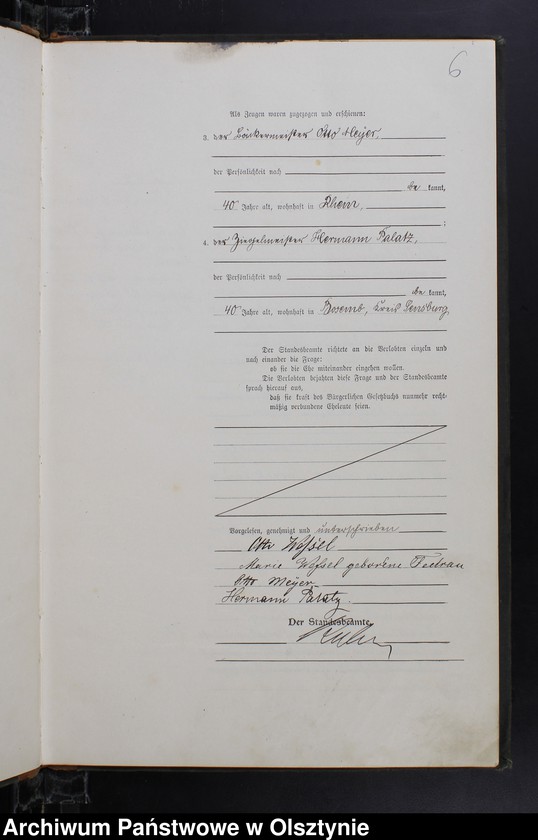 6
Als Zeugen waren zugezogen und erschienen:
3. der Bäckermeister Otto Meyer,
der Persönlichkeit nach
be kannt,
40 Jahre alt, wohnhaft in Rhein,
;
4. der Ziegelmeister Hermann Palatz,
der Persönlichkeit nach
be kannt,
40 Jahre alt, wohnhaft in Bosemb, Kreis Sensburg,
Der Standesbeamte richtete an die Verlobten einzeln und
nach einander die Frage:
ob sie die Ehe miteinander eingehen wollen.
Die Verlobten bejahten diese Frage und der Standesbeamte
sprach hierauf aus,
daß sie kraft des Bürgerlichen Gesetzbuchs nunmehr recht-
mäßig verbundene Eheleute seien.
Vorgelesen, genehmigt und unterschrieben
Otto
Marie geborene
Otto Meyer
Hermann Palatz.
Der Standesbeamte.
Archiwum Państwowe w Olsztynie